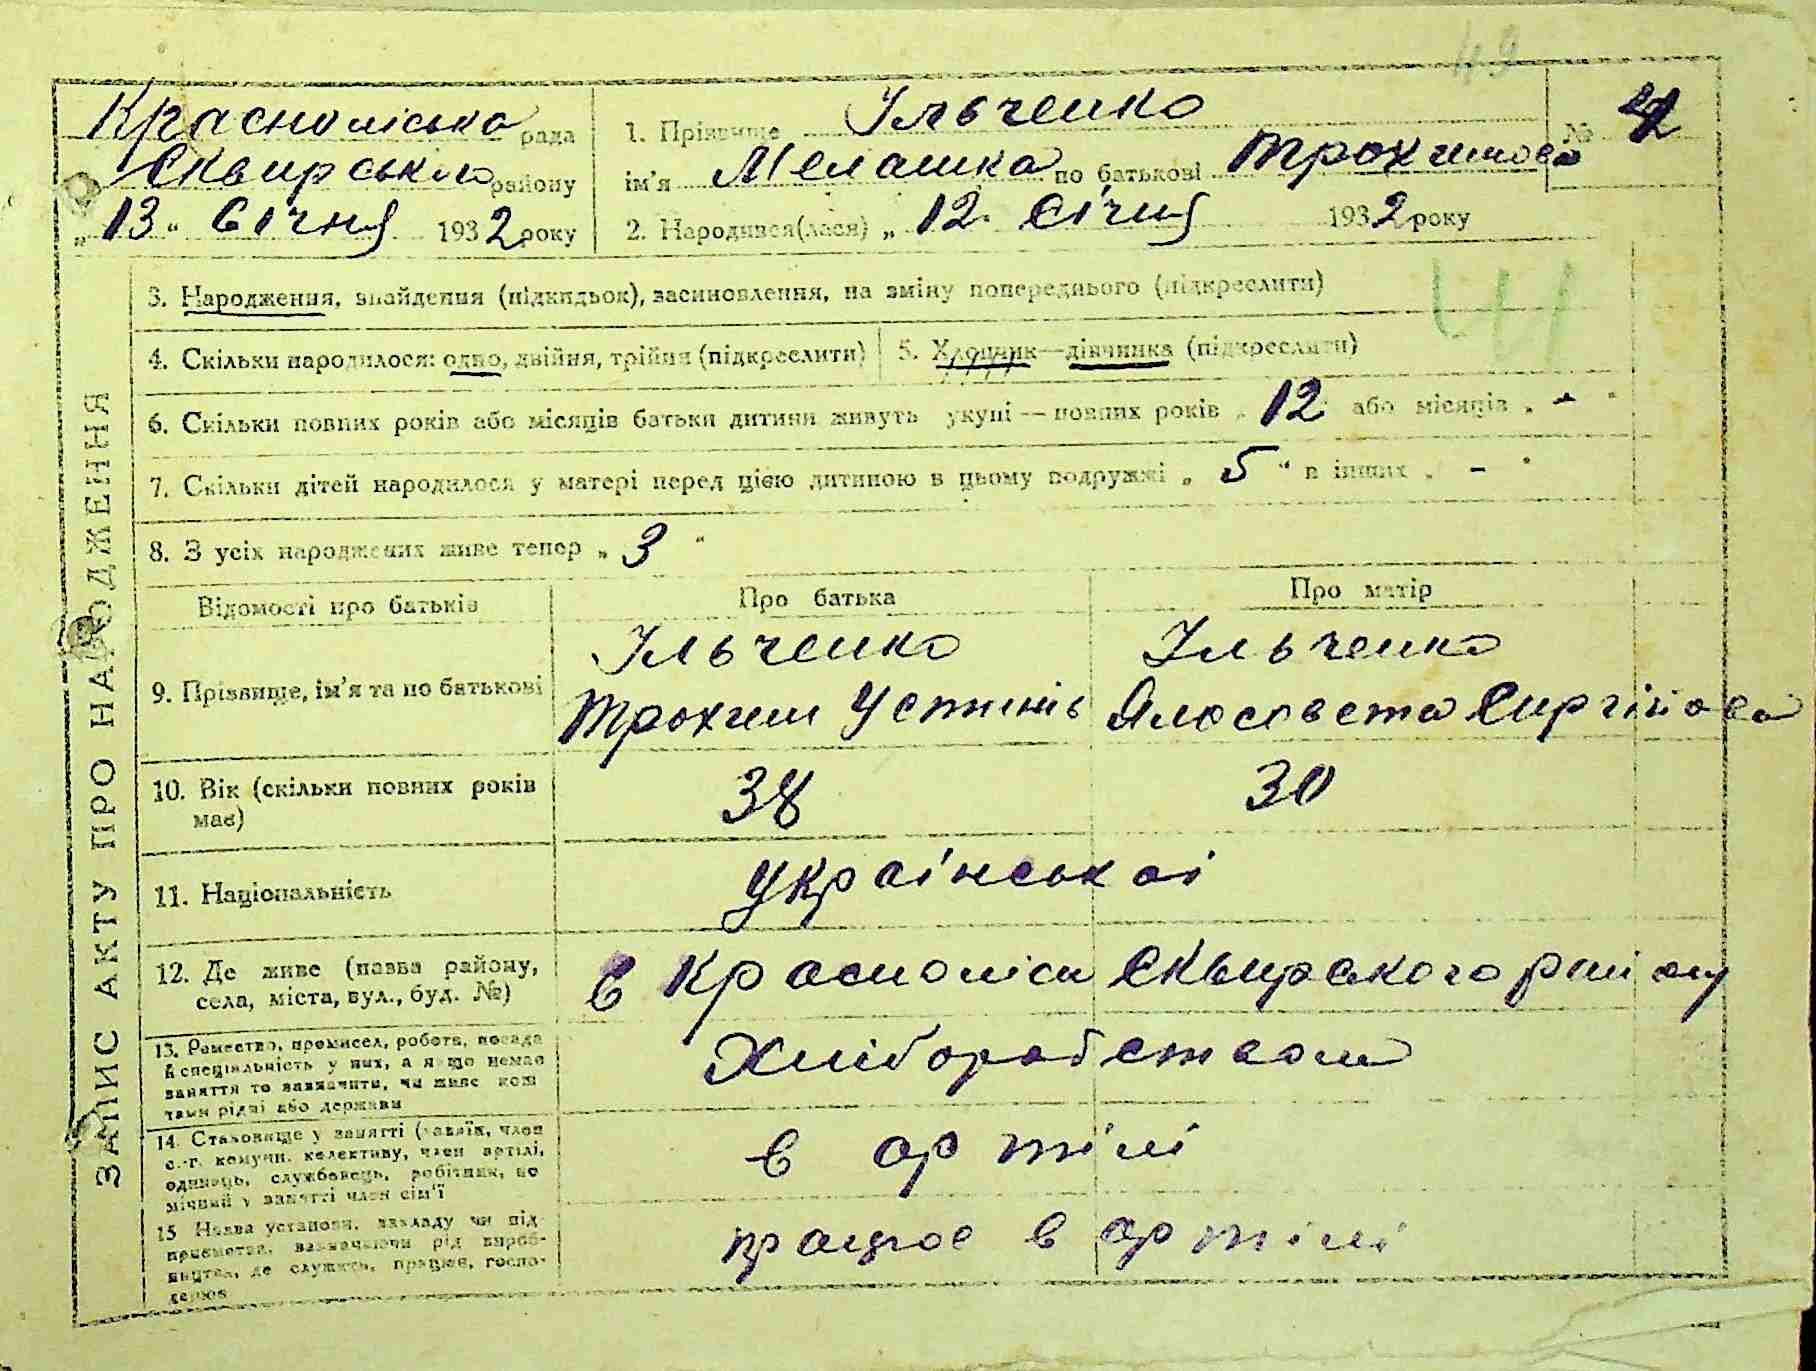 49
Красноліська рада
Сквирського району
„13" Січня 1932 року
1. Прізвище Ільченко
№ 4
ім'я Мелашка по батькові Трохимова
2. Народився(лася) „12" Січня 1932 року
3. Народження, знайдення (підкидьок), засиновлення, на зміну попереднього (підкреслити)
4. Скільки народилося: одно, двійня, трійня (підкреслити)
5. Хлопчик—дівчинка (підкреслити)
6. Скільки повних років або місяців батьки дитини живуть укупі — повних років „12" або місяців „-"
7. Скільки дітей народилося у матері перед цією дитиною в цьому подружжі „5" в інших „-"
8. З усіх народжених живе тепер „3"
ЗАПИС АКТУ ПРО НАРОДЖЕННЯ
Відомості про батьків
Про батька
Про матір
9. Прізвище, ім'я та по батькові
Ільченко
Трохим Устинів
Ільченко
Ялосовета Сиргійова
10. Вік (скільки повних років має)
38
30
11. Національність
Українськоі
12. Де живе (назва району, села, міста, вул., буд. №)
в Красноліси Сквирского району
13. Ремество, промисел, робота, посада
й спеціяльність у них, а якщо немає
заняття то зазначити, чи живе кош
тами рідні або держави
Хліборобством
14. Становище у занятті (хазяїн, член
с.-г. комуни, колективу, член артілі,
одинець, службовець, робітник, по
мічний у занятті член сім'ї
в артілі
15 Назва установи, закладу чи під-
приємства, зазначаючи рід вироб-
ництва, де служить, працює, госпо-
дарює
працює в артілі